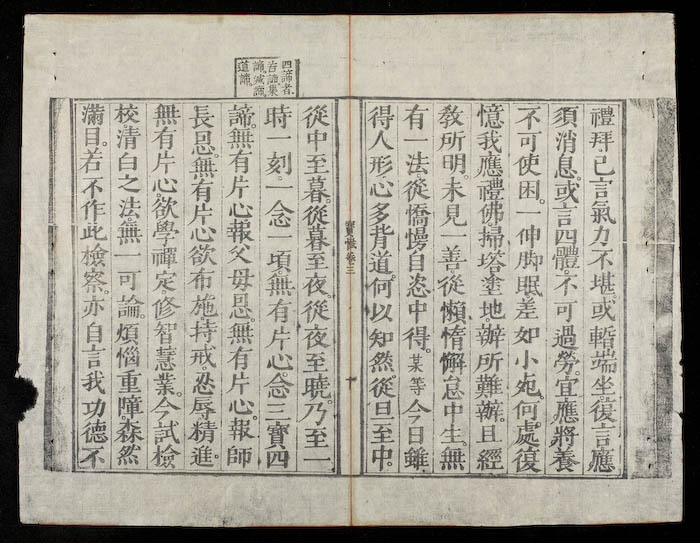 禮拜。已言氣力不堪。或暫端坐。復言應
須消息。或言四體。不可過勞。宜應將養
不可使困。一伸脚眠。差如小宛。何處復
憶我應禮佛掃塔塗地。辦所難辦。且經
教所明。未見一善從懶惰懈怠中生。無
有一法從憍慢自恣中得。某等今日雖
得人形。心多背道。何以知然。從旦至中。
寶懺卷三
十
四諦者。
苦諦集
諦滅諦
道諦。
從中至暮。從暮至夜。從夜至曉。乃至一
時一刻。一念一頃。無有片心。念三寶四
諦。無有片心報父母恩。無有片心。報師
長恩。無有片心欲布施。持戒。忍辱精進。
無有片心欲學禪定。修智慧業。今試檢
校清白之法。無一可論。煩惱重障。森然
滿目。若不作此檢察。亦自言我功德不